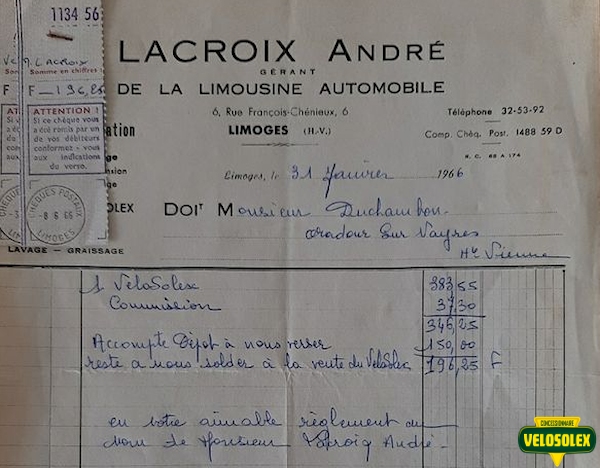 1134 56
LACROIX ANDRÉ
M. LACROIX
Somme en chiffres
GÉRANT
F F—196,25
DE LA LIMOUSINE AUTOMOBILE
ATTENTION !
Si ce chèque vous
a été remis par un
de vos débiteurs
conformez-vous
aux indications
du verso.
6, Rue François-Chénieux, 6
LIMOGES (H.-V.)
Téléphone 32-53-92
Comp. Chèq. Post. 1488 59 D
R. C. 55 A 174
Limoges, le 31 Janvier 1966
CHÈQUES POSTAUX
-8 6 66
LIMOGES
OLEX
DOIT Monsieur Duchambon
Oradour sur Vayres
Hte Vienne
LAVAGE - GRAISSAGE
1 VéloSolex 383,55
Commission 37,30
346,25
Accompte Dépot à nous verser 150,00
reste a nous solder à la vente du VéloSolex 196,25 F
en votre aimable règlement au
Nom de Monsieur Lacroix André.
CONCESSIONNAIRE
VELOSOLEX